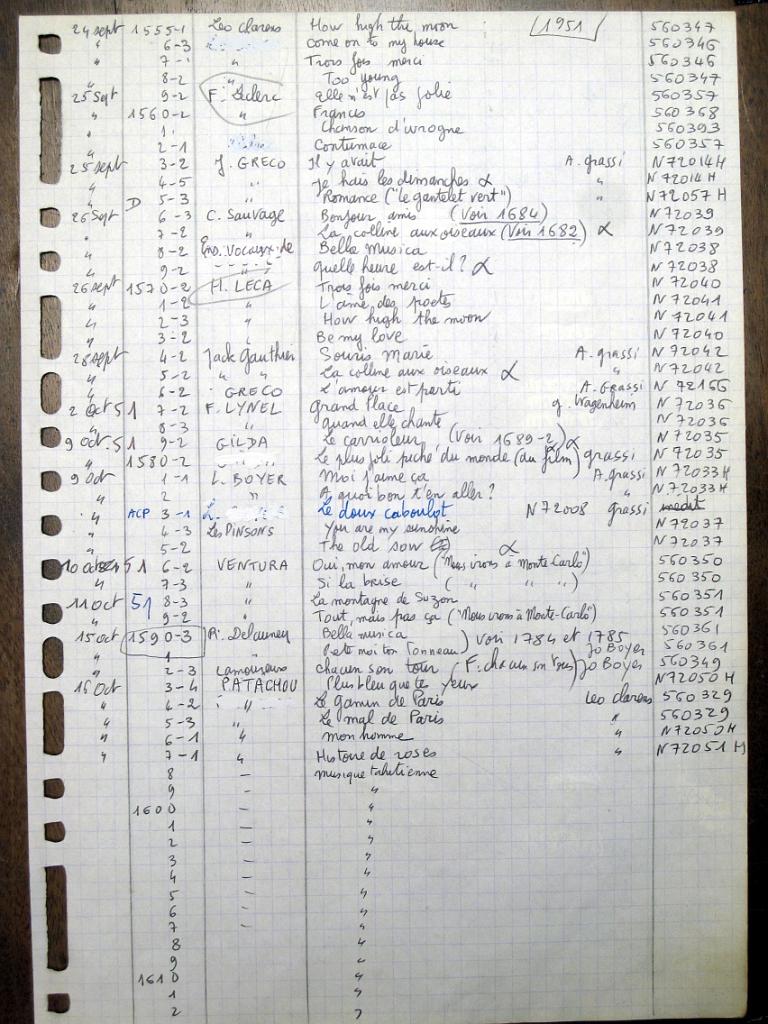 24 sept 1555-1 Leo clarens How high the moon [1951] 560347
" 6-3 Come on to my house 560346
" 7-1 " Trois fois merci 560346
" 8-2 " Too young 560347
25 Sept 9-2 F. Leclerc elle n'est pas jolie 560357
" 1560-2 " Francis 560368
1 Chanson d'ivrogne 560393
" 2-1 Contumace 560357
25 sept 3-2 J. GRECO Il y avait A. grassi N72014H
" 4-5 " Je hais les dimanches α " N72014H
" D 5-3 " Romance ("le gantelet vert") " N72057H
26 Sept 6-3 C. Sauvage Bonjour amis (Voir 1684) N72039
" 7-2 " La colline aux oiseaux (Voir 1682) α N72039
" 8-2 Ens. Vocaux de Bella Musica N72038
" 9-2 quelle heure est-il? α N72038
26 sept 1570-2 H. LECA Trois fois merci N72040
" 1-2 " L'âme des poètes N72041
" 2-3 " How high the moon N72041
" 3-2 " Be my love N72040
28 sept 4-2 Jack Gauthier Souris Marie A. grassi N72042
" 5-2 " " La colline aux oiseaux α " N72042
" 6-2 GRECO L'amour est parti A. Grassi N72166
2 Oct 51 7-2 F. LYNEL Grand Place g. Wagenheim N72036
8-3 " quand elle chante N72036
9 Oct. 51 9-2 GILDA Le carrioleur (Voir 1689-2) α N72035
" 1580-2 Le plus joli péché du monde (du film) grassi N72035
9 Oct 1-1 L. BOYER Moi j'aime ça A. grassi N72033H
" 2 " A quoi bon t'en aller? " N72033H
" ACP 3-1 L. Le doux caboulot N72008 grassi inédit
" 4-3 Les PINSONS You are my sunshine N72037
" 5-2 The old sow α N72037
10 oct 51 6-2 VENTURA Oui, mon amour ("Nous irons à Monte-Carlo") 560350
" 7-3 " Si la brise ( " " " ) 560350
11 oct 51 8-3 " La montagne de Suzon 560351
" 9-2 " Tout, mais pas ça ("Nous irons à Monte-Carlo") 560351
15 oct 1590-3 R. Delauney Bella musica ) Voir 1784 et 1785 560361
" 1 " Prête moi ton Tonneau ) Jo Boyer 560361
" 2-3 Lamoureux chacun son tour (F. chacun son tour) Jo Boyer 560349
16 Oct 3-4 PATACHOU Plus bleu que tes yeux N72050H
" 4-2 Le gamin de Paris Leo clarens 560329
" 5-3 " Le mal de Paris " 560329
" 6-1 " mon homme " N72050H
" 7-1 " Histoire de roses " N72051H
8 - musique tahitienne
9 - "
1600 - "
1 - "
2 - "
3 - "
4 - "
5 - "
6 - "
7 - "
8 "
9 "
1610 "
1 "
2 "